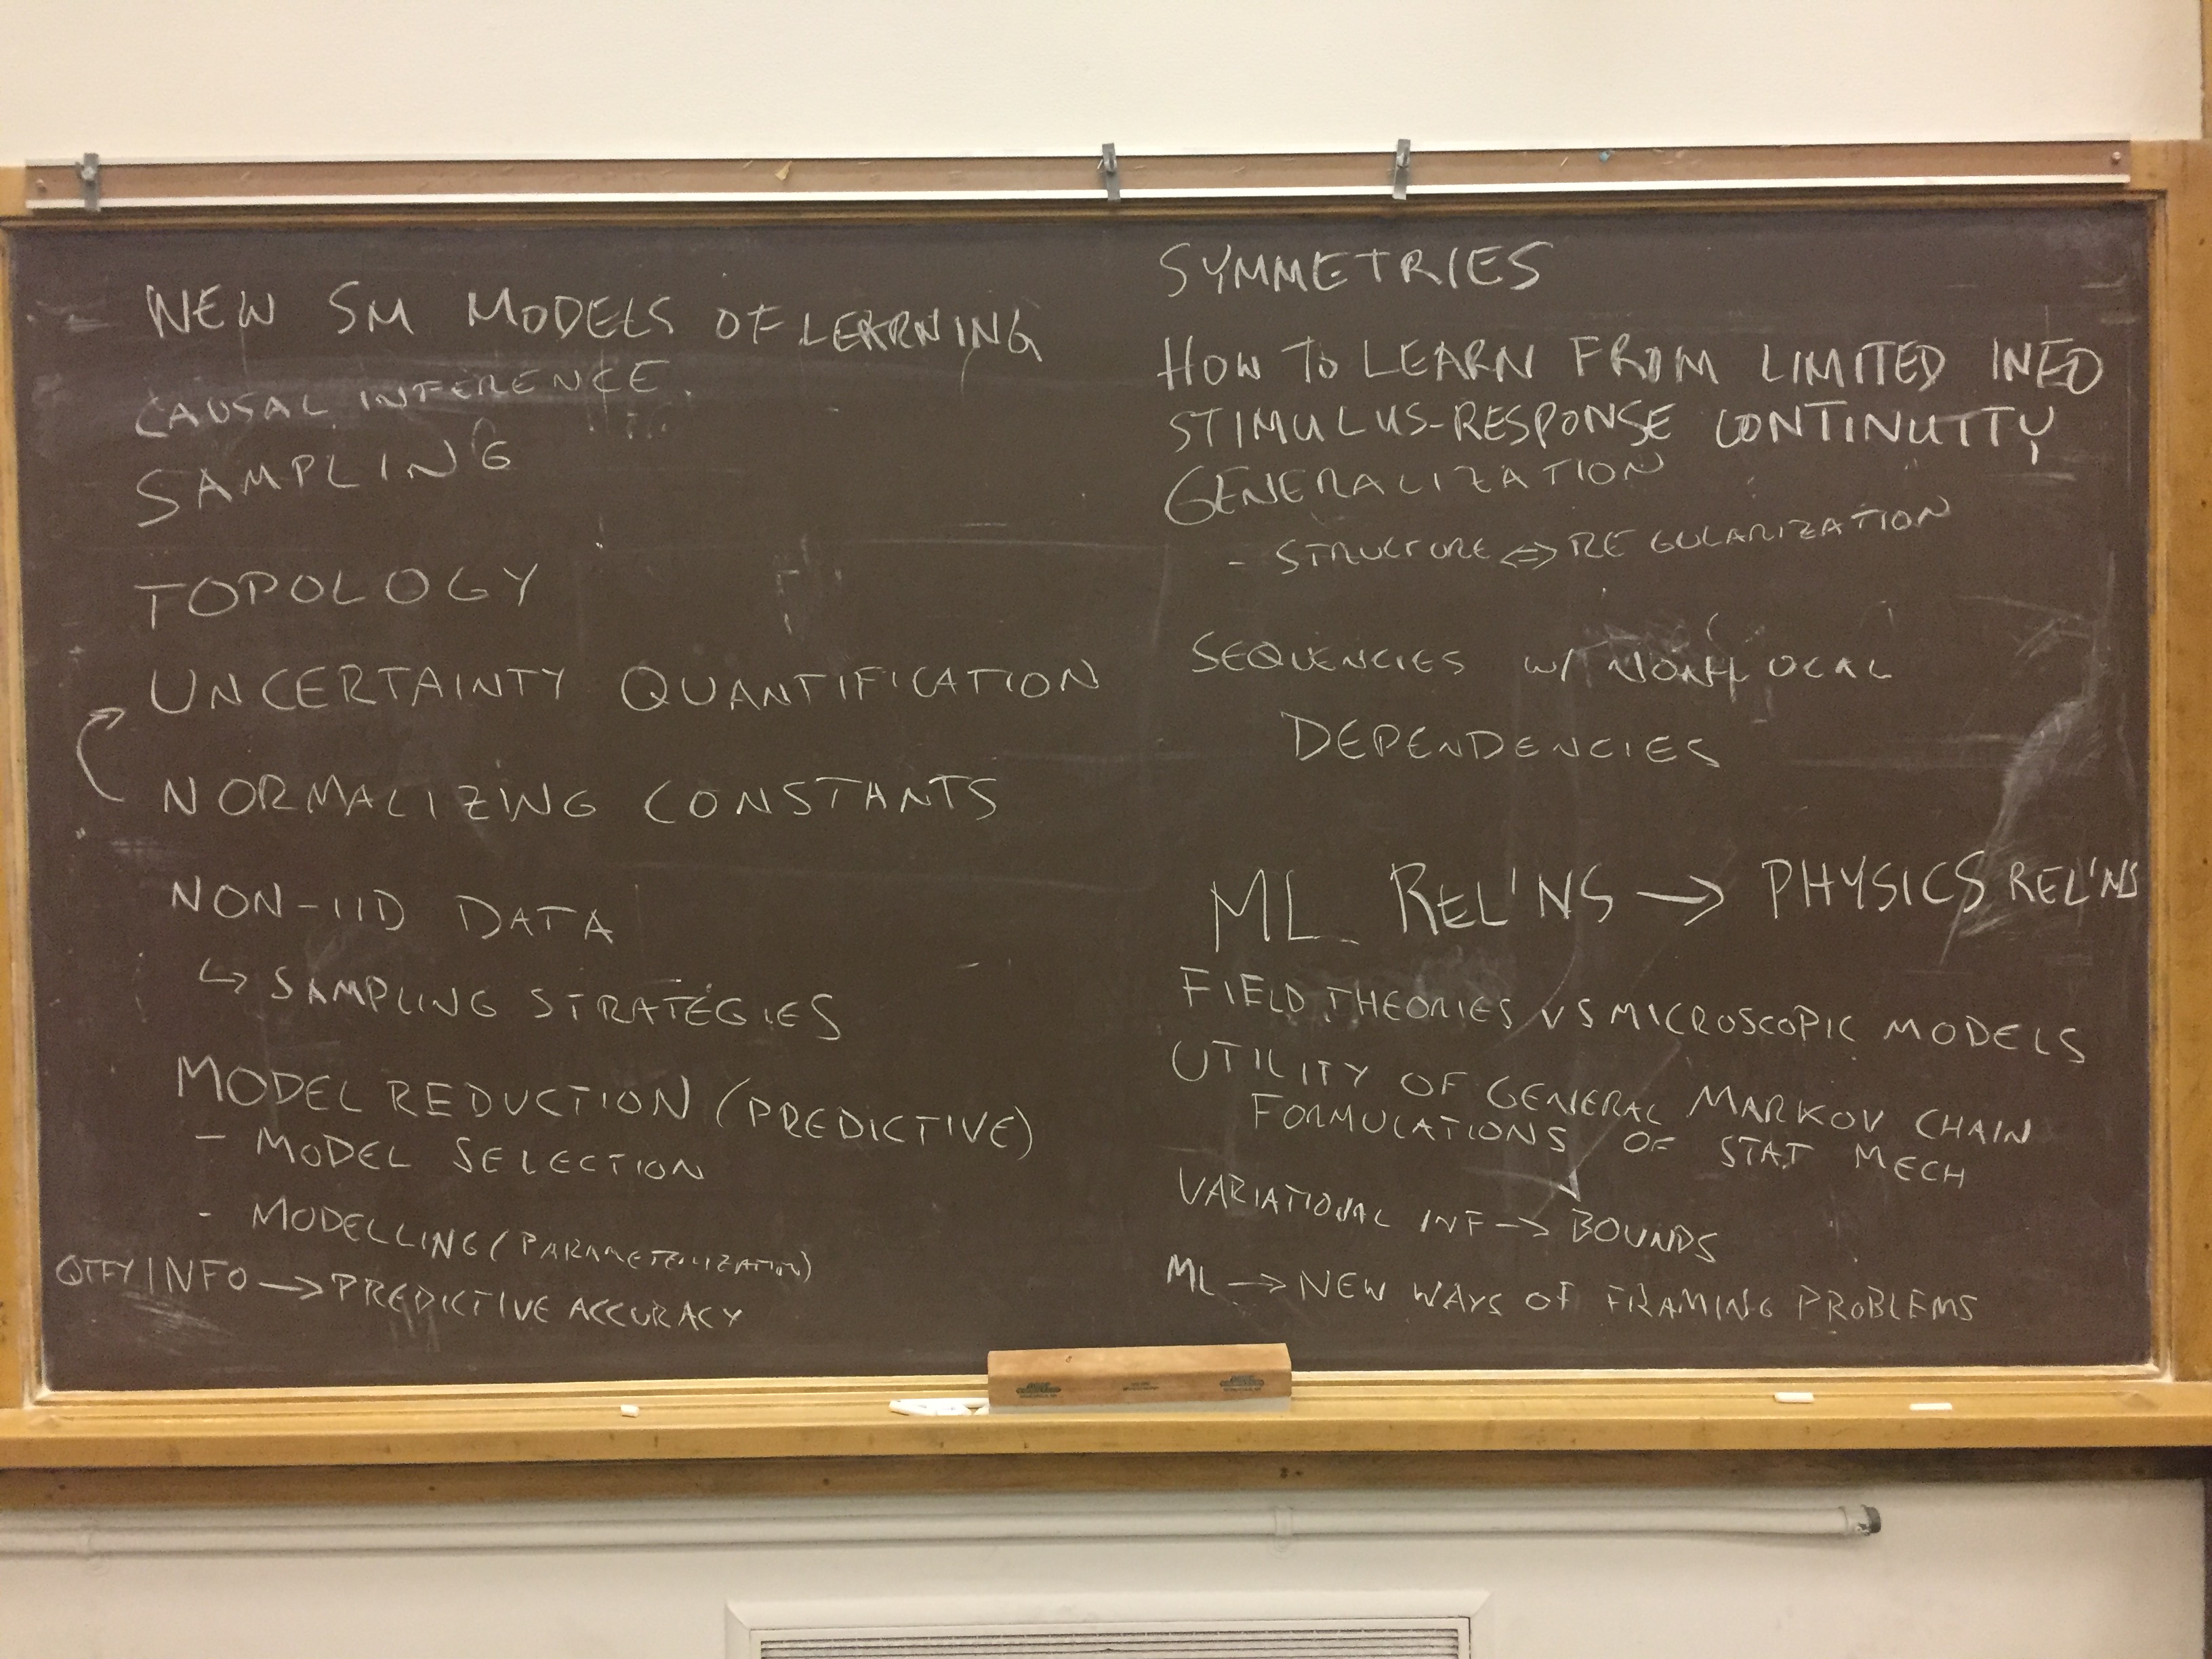 NEW SM MODELS OF LEARNING
CAUSAL INFERENCE
SAMPLING
TOPOLOGY
UNCERTAINTY QUANTIFICATION
NORMALIZING CONSTANTS
NON-IID DATA
↳ SAMPLING STRATEGIES
MODEL REDUCTION (PREDICTIVE)
- MODEL SELECTION
- MODELLING (PARAMETERIZATION)
QTFY INFO → PREDICTIVE ACCURACY
SYMMETRIES
HOW TO LEARN FROM LIMITED INFO
STIMULUS-RESPONSE CONTINUITY
GENERALIZATION
- STRUCTURE ⇔ REGULARIZATION
SEQUENCIES W/ NONLOCAL
DEPENDENCIES
ML REL'NS → PHYSICS REL'NS
FIELD THEORIES VS MICROSCOPIC MODELS
UTILITY OF GENERAL MARKOV CHAIN
FORMULATIONS OF STAT MECH
VARIATIONAL INF → BOUNDS
ML → NEW WAYS OF FRAMING PROBLEMS